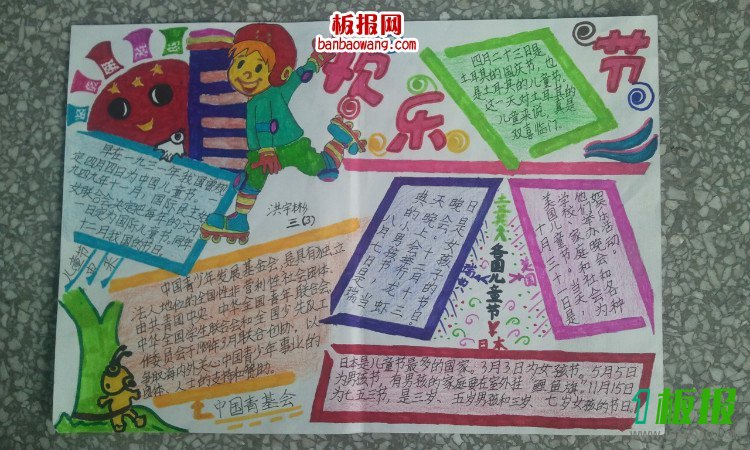 板报网
banbaowang.com
欢乐
节
四月二十三日是
土耳其的国庆节，也
是土耳其的儿童节。
这一天对土耳其的
儿童来说，真是
双喜临门。
早在一九三一年我国曾规
定四月四日为中国儿童节。
九四九年十一月，国际民主妇
女联合会决定把每年的六月
一日定为国际儿童节。同年
十二月我国
三(3)
中国青少年发展基金会，是具有独立
法人地位的全国性非营利性社会团体。
由共青团中央、中华全国青年联合会、
中华全国学生联合会和全国少先队工
作委员会于1989年3月联合创办，以
争取海内外关心中国青少年事业的
团体、人士的支持和赞助。
中国青基会
八月七日是
的小男孩节"龙虾
典。晚上会举行
天是女孩子的节日。
娱乐活动。
他们举办晚会、为
学校、家庭和社会
美国儿童节。当天，
十月三十一日是
各国儿童节
土耳其
美国
日本
日本是儿童节最多的国家。3月3日为女孩节。5月5日
为男孩节，有男孩的家庭要在室外挂"鲤鱼旗"。11月15日
为七五三节，是三岁、五岁男孩和三岁、七岁女孩的节日。
板报